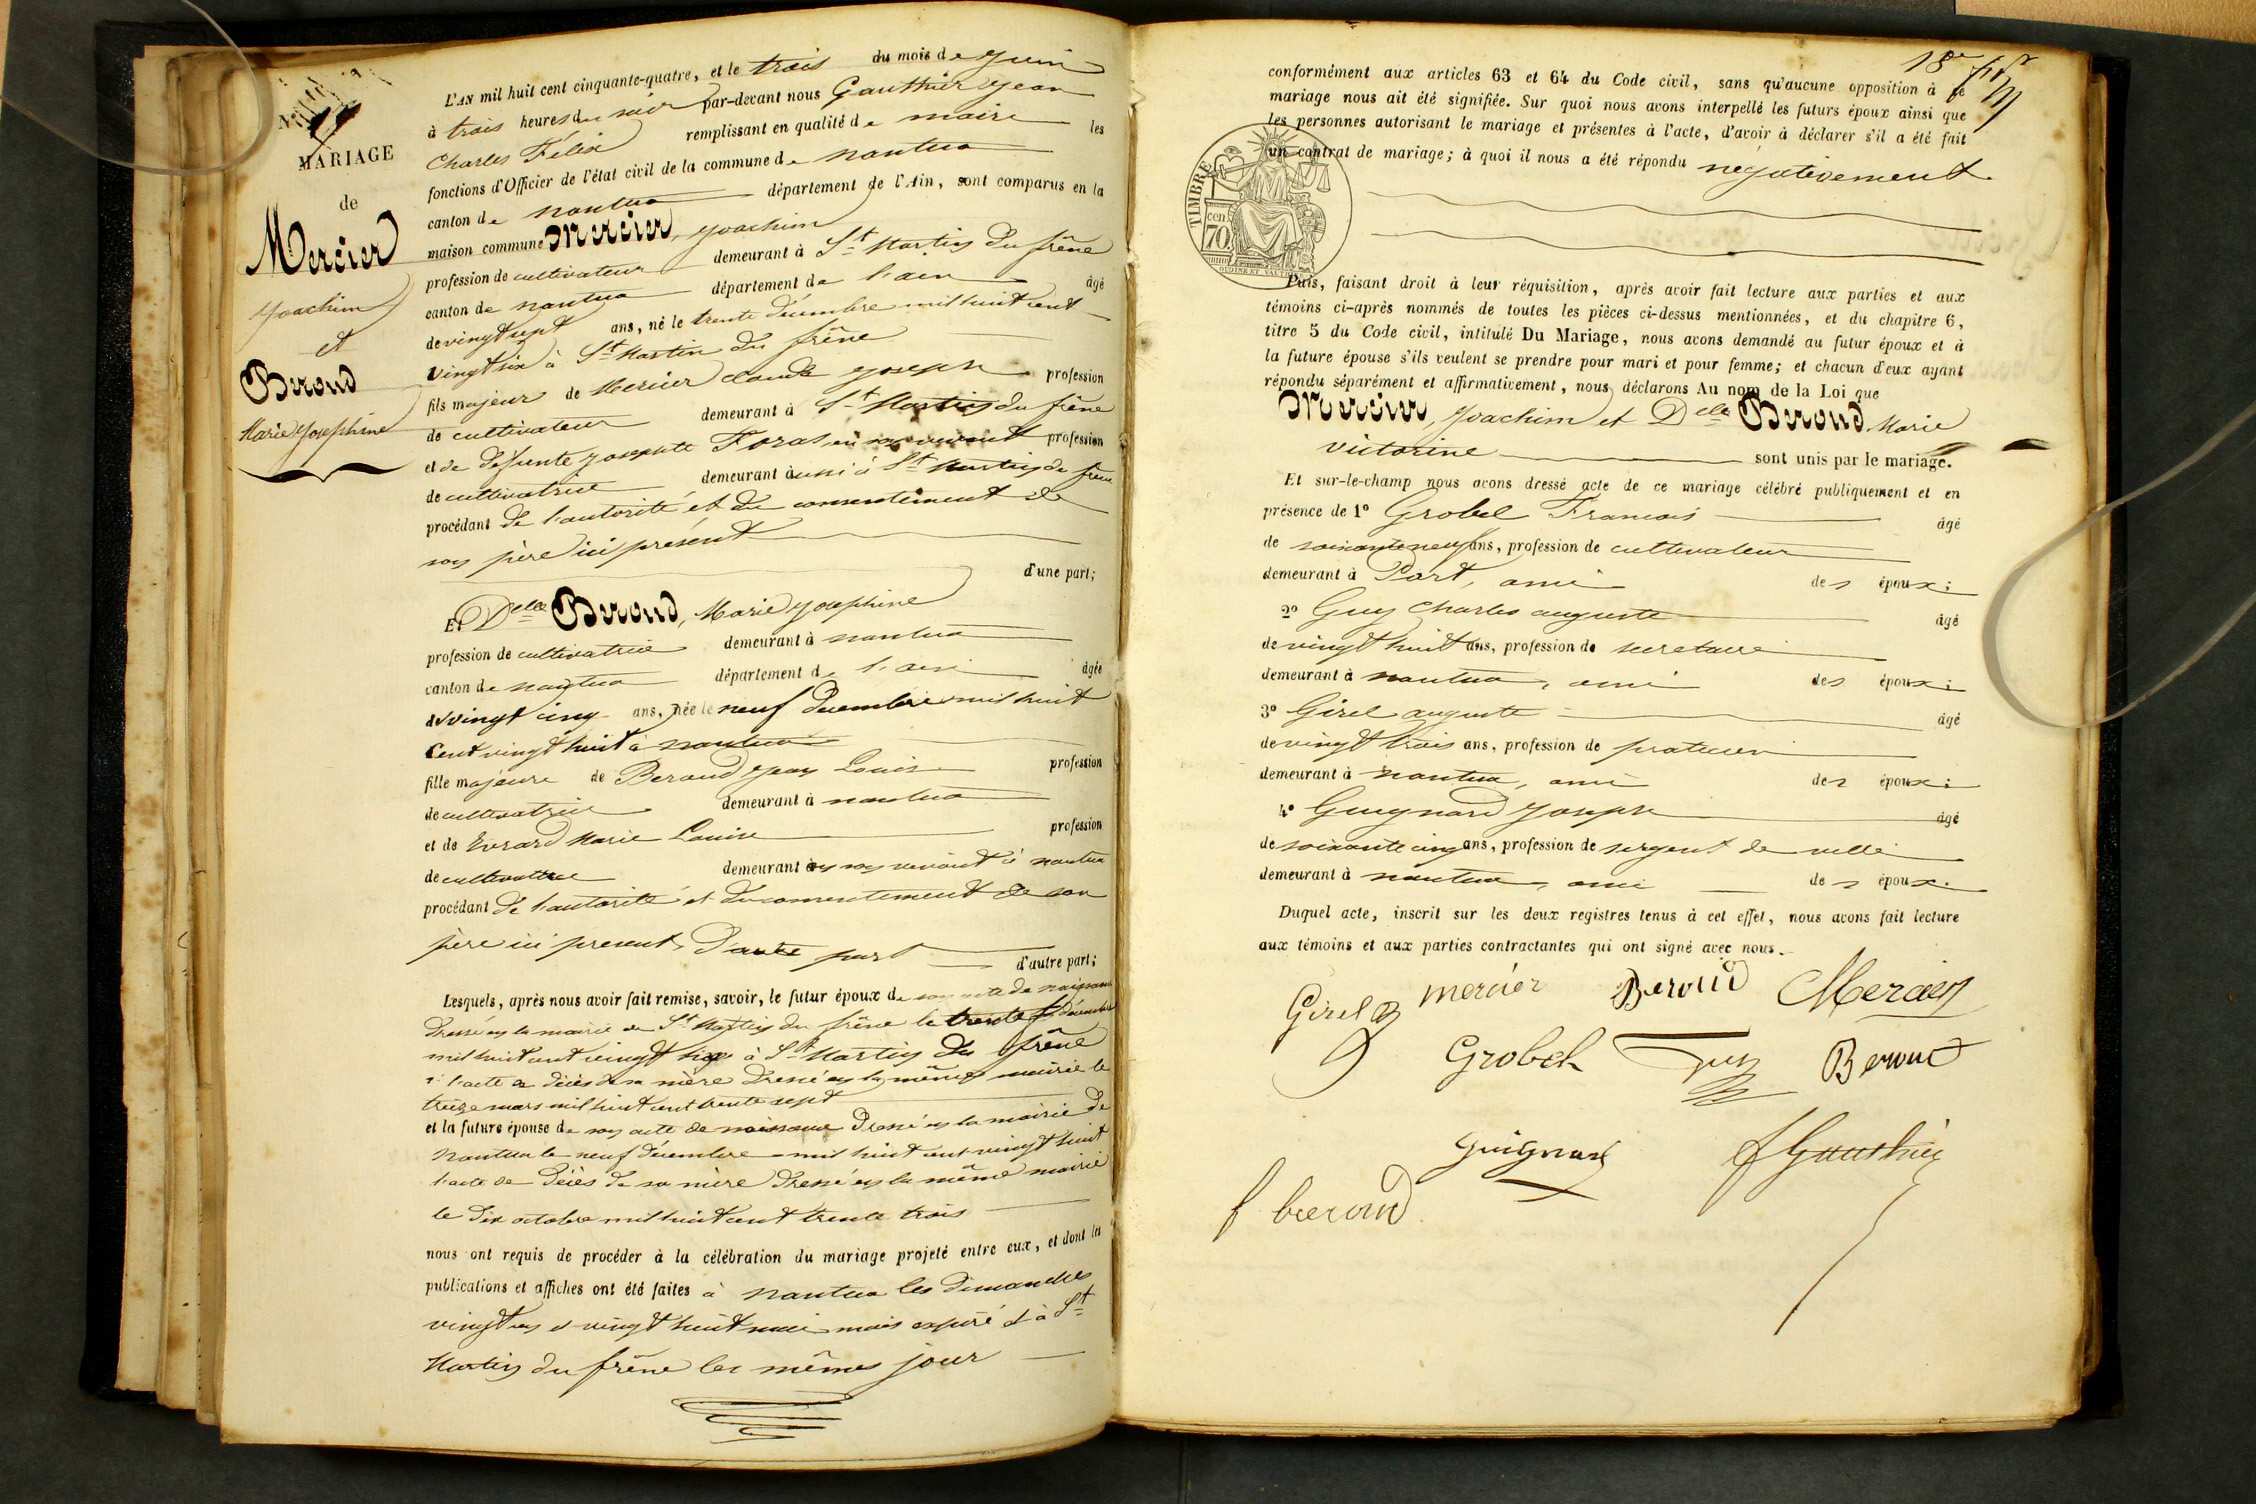 MARIAGE
de
Mercier
Joachim
et
Beroud
Marie Josephine
L'AN mil huit cent cinquante-quatre, et le trois du mois de Juin
à trois heures du soir par-devant nous Gauthier Jean
Charles Félix remplissant en qualité de maire les
fonctions d'Officier de l'état civil de la commune de nantua
canton de nantua département de l'Ain, sont comparus en la
maison commune Mercier, Joachim
profession de cultivateur demeurant à St Martin du frêne
canton de nantua département de l'ain âgé
de vingt sept ans, né le trente décembre mil huit cent
vingt six à St Martin du frêne
fils majeur de Mercier claude Joseph profession
de cultivateur demeurant à St Martin du frêne
et de defunte Josephte Foras en son vivant profession
de cultivatrice demeurant à aussi à St Martin du frene
procédant de l'autorité et du consentement de
son père ici présent
d'une part;
Et Delle Beroud, Marie Josephine
profession de cultivatrice demeurant à nantua
canton de nantua département de l'ain âgée
de vingt cinq ans, née le neuf decembre mil huit
Cent vingt huit à nantua
fille majeure de Beroud Jean Louis profession
de cultivatrice demeurant à nantua
et de Evrard Marie Louise profession
de cultivatrice demeurant à en son vivant à nantua
procédant de l'autorité et du consentement de son
père ici present, D'autre part
d'autre part;
Lesquels, après nous avoir fait remise, savoir, le futur époux de son acte de naissance
Dressé en la mairie de St Martin du frêne le trente décembre
mil huit cent vingt six à St Martin du frêne
l'acte de décès de sa mère Dressé en la même mairie le
treize mars mil huit cent trente sept
et la future épouse de son acte de naissance Dressé en la mairie de
Nantua le neuf décembre mil huit cent vingt huit
l'acte de décès de sa mère Dressé en la même mairie
le dix octobre mil huit cent trente trois
nous ont requis de procéder à la célébration du mariage projeté entre eux, et dont les
publications et affiches ont été faites à nantua les Dimanches
vingt un et vingt huit mai mois expiré et à St
Martin du frêne les mêmes jour
18e
conformément aux articles 63 et 64 du Code civil, sans qu'aucune opposition à ce
mariage nous ait été signifiée. Sur quoi nous avons interpellé les futurs époux ainsi que
les personnes autorisant le mariage et présentes à l'acte, d'avoir à déclarer s'il a été fait
un contrat de mariage; à quoi il nous a été répondu négativement.
TIMBRE
cen
70
Puis, faisant droit à leur réquisition, après avoir fait lecture aux parties et aux
témoins ci-après nommés de toutes les pièces ci-dessus mentionnées, et du chapitre 6,
titre 5 du Code civil, intitulé Du Mariage, nous avons demandé au futur époux et à
la future épouse s'ils veulent se prendre pour mari et pour femme; et chacun d'eux ayant
répondu séparément et affirmativement, nous déclarons Au nom de la Loi que
Mercier, Joachim et Delle Beroud Marie
victorine sont unis par le mariage.
Et sur-le-champ nous avons dressé acte de ce mariage célébré publiquement et en
présence de 1° Grobel Francois âgé
de soixante neuf ans, profession de cultivateur
demeurant à Port, ami des époux;
2° Guy Charles auguste âgé
de vingt huit ans, profession de secretaire
demeurant à nantua, ami des époux;
3° Girel auguste âgé
de vingt trois ans, profession de praticien
demeurant à nantua, ami des époux;
4° Guignard Joseph âgé
de soixante cinq ans, profession de sergent de ville
demeurant à nantua, ami des époux.
Duquel acte, inscrit sur les deux registres tenus à cet effet, nous avons fait lecture
aux témoins et aux parties contractantes qui ont signé avec nous.
Girel a mercier Beroud Mercier
Grobel Guy Beroud
Guignard f Gauthier
f beroud